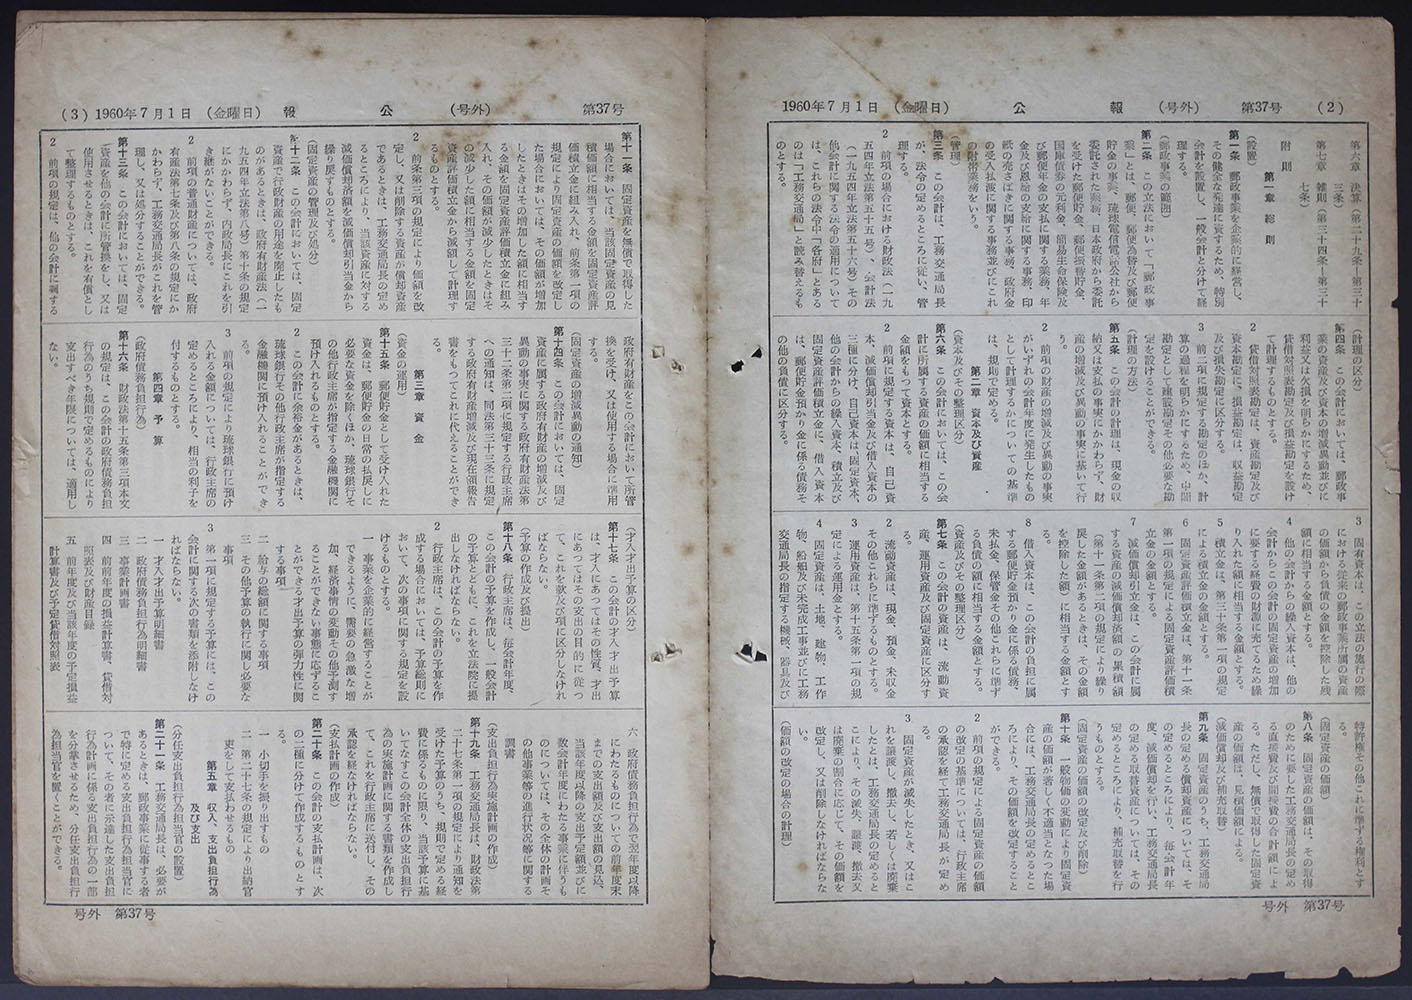 1960年7月1日 (金曜日) 公報 (号外) 第37号 (2)
第六章 決算(第二十九条―第三十
三条)
第七章 雑則(第三十四条―第三十
七条)
附則
第一章 総則
(設置)
第一条 郵政事業を企業的に経営し、
その健全な発達に資するため、特別
会計を設置し、一般会計と分けて経
理する。
(郵政事業の範囲)
第二条 この立法において「郵政事
業」とは、郵便、郵便為替及び郵便
貯金の事業、琉球電信電話公社から
委託された業務、日本政府から委託
を受けた郵便貯金、郵便振替貯金、
国庫債券の元利金、簡易生命保険及
び郵便年金の支払に関する業務、年
金及び恩給の支給に関する事務、印
紙の売さばきに関する事務、政府金
の受入払渡に関する事務並びにこれ
の附帯業務をいう。
(管理)
第三条 この会計は、工務交通局長
が、法令の定めるところに従い、管
理する。
2 前項の場合における財政法(一九
五四年立法第五十五号)、会計法
(一九五四年立法第五十六号)その
他会計に関する法令の適用について
は、これらの法令中「各府」とある
のは「工務交通局」と読み替えるも
のとする。
(計理の区分)
第四条 この会計においては、郵政事
業の資産及び資本の増減異動並びに
利益又は欠損を明らかにするため、
貸借対照表勘定及び損益勘定を設け
て計理するものとする。
2 貸借対照表勘定は、資産勘定及び
資本勘定に、損益勘定は、収益勘定
及び損失勘定に区分する。
3 前二項に規定する勘定のほか、計
算の過程を明らかにするため、中間
勘定として建設勘定その他必要な勘
定を設けることができる。
(計理の方法)
第五条 この会計の計理は、現金の収
納又は支払の事実にかかわらず、財
産の増減及び異動の事実に基いて行
う。
2 前項の財産の増減及び異動の事実
がいずれの会計年度に発生したもの
として計理するかについての基準
は、規則で定める。
第二章 資本及び資産
(資本及びその整理区分)
第六条 この会計においては、この会
計に所属する資産の価額に相当する
金額をもつて資本とする。
2 前項に規定する資本は、自己資
本、減価償却引当金及び借入資本の
三種に分け、自己資本は、固有資本、
他の会計からの繰入資本、積立及び
固定資産評価積立金に、借入資本
は、郵便貯金預かり金に係る債務そ
の他の負債に区分する。
3 固有資本は、この立法の施行の際
における従来の郵政事業所属の資産
の価額から負債の金額を控除した残
額に相当する金額とする。
4 他の会計からの繰入資本は、他の
会計からこの会計の固定資産の増加
に要する経費の財源に充てるため繰
り入れた額に相当する金額とする。
5 積立金は、第三十条第一項の規定
による積立金の金額とする。
6 固定資産評価積立金は、第十一条
第一項の規定による固定資産評価積
立金の金額とする。
7 減価償却引当金は、この会計に属
する資産の減価償却済額の累積額
(第十一条第二項の規定により繰り
戻した金額があるときは、その金額
を控除した額)に相当する金額とす
る。
8 借入資本は、この会計の負担に属
する郵便貯金預かり金に係る債務、
未払金、保管金その他これらに準ず
る負債の額に相当する金額とする。
(資産及びその整理区分)
第七条 この会計の資産は、流動資
産、運用資産及び固定資産に区分す
る。
2 流動資産は、現金、預金、未収金
その他これらに準ずるものとする。
3 運用資産は、第十五条第一項の規
定による運用金とする。
4 固定資産は、土地、建物、工作
物、船舶及び未完成工事並びに工務
交通局長の指定する機械、器具及び
特許権その他これに準ずる権利とす
る。
(固定資産の価額)
第八条 固定資産の価額は、その取得
のために要した工務交通局長の定め
る直接費及び間接費の合計額によ
る。ただし、無償で取得した固定資
産の価額は、見積価額による。
(減価償却及び補充取替)
第九条 固定資産のうち、工務交通局
長の定める償却資産については、そ
の定めるところにより、毎会計年
度、減価償却を行い、工務交通局長
の定める取替資産については、その
定めるところにより、補充取替を行
うものとする。
(固定資産の価額の改定及び削除)
第十条 一般物価の変動により固定資
産の価額が著しく不適当となつた場
合には、工務交通局長の定めるとこ
ろにより、その価額を改定すること
ができる。
2 前項の規定による固定資産の価額
の改定の基準については、行政主席
の承認を経て工務交通局長が定め
る。
3 固定資産が滅失したとき、又はこ
れを譲渡し、撤去し、若しくは廃棄
したとは、工務交通局長の定めると
ころにより、その滅失、譲渡、撤去又
は廃棄の割合に応じて、その価額を
改定し、又は削除しなければならな
い。
(価額の改定の場合の計理)
号外 第37号
(3) 1960年7月1日 (金曜日) 報公 (号外) 第37号
第十一条 固定資産を無償で取得した
場合においては、当該固定資産の見
積価額に相当する金額を固定資産評
価積立金に組み入れ、前条第一項の
規定により固定資産の価額を改定し
た場合においては、その価額が増加
したときはその増加した額に相当す
る金額を固定資産評価積立金に組み
入れ、その価額が減少したときはそ
の減少した額に相当する金額を固定
資産評価積立金から減額して計理す
るものとする。
2 前条第三項の規定により価額を改
定し、又は削除する資産が償却資産
であるときは、工務交通局長の定め
るところにより、当該資産に対する
減価償却済額を減価償却引当金から
繰り戻すものとする。
(固定資産の管理及び処分)
第十二条 この会計においては、固定
資産で行政財産の用途を廃止したも
のがあるときは、政府有財産法(一
九五四年立法第八号)第十条の規定
にかかわらず、内政局長にこれを引
き継がないことができる。
2 前項の普通財産については、政府
有財産法第七条及び第八条の規定にか
かわらず、工務交通局長がこれを管
理し、又は処分することができる。
第十三条 この会計においては、固定
資産を他の会計に所管換をし、又は
使用させるときは、これを有償とし
て整理するものとする。
2 前項の規定は、他の会計に属する
政府有財産をこの会計において所管
換を受け、又は使用する場合に準用
する。
(固定資産の増減異動の通知)
第十四条 この会計においては、固定
資産に属する政府有財産の増減及び
異動の事実に関する政府有財産法第
三十二条第二項に規定する行政主席
への通知は、同法第三十三条に規定
する政府有財産増減及び現在額報告
書をもつてこれに代えることができ
る。
第三章 資金
(資金の運用)
第十五条 郵便貯金として受け入れた
資金は、郵便貯金の日常の払戻しに
必要な資金を除くほか、琉球銀行そ
の他行政主席が指定する金融機関に
預け入れるものとする。
2 この会計に余裕金があるときは、
琉球銀行その他行政主席が指定する
金融機関に預け入れることができ
る。
3 前項の規定により琉球銀行に預け
入れる金額については、行政主席の
定めるところにより、相当の利子を
付するものとする。
第四章 予算
(政府債務負担行為)
第十六条 財政法第十五条第三項本文
の規定は、この会計の政府債務負担
行為のうち規則で定めるものにより
支出すべき年限については、適用し
ない。
(才入才出予算の区分)
第十七条 この会計の才入才出予算
は、才入にあつてはその性質、才出
にあつてはその支出の目的に従つ
て、これを款及び項に区分しなけれ
ばならない。
(予算の作成及び提出)
第十八条 行政主席は、毎会計年度、
この会計の予算を作成し、一般会計
の予算とともに、これを立法院に提
出しなければならない。
2 行政主席は、この会計の予算を作
成する場合においては、予算総則に
おいて、次の事項に関する規定を設
けるものとする。
一 事業を企業的に経営することが
できるように、需要の急激な増
加、経済事情の変動その他予測す
ることができない事態に応ずるこ
とができる才出予算の弾力性に関
する事項
二 給与の総額に関する事項
三 その他予算の執行に関し必要な
事項
3 第一項に規定する予算には、この
会計に関する次の書類を添附しなけ
ればならない。
一 才入才出予算明細書
二 政府債務負担行為明細書
三 事業計画書
四 前前年度の損益計算書、貸借対
照表及び財産目録
五 前年度及び当該年度の予定損益
計算書及び予定貸借対照表
六 政府債務負担行為で翌年度以降
にわたるものについての前年度末
までの支出額及び支出額の見込、
当該年度以降の支出予定額並びに
数会計年度にわたる事業に伴うも
のについては、その全体の計画そ
の他事業等の進行状況等に関する
調書
(支出負担行為実施計画の作成)
第十九条 工務交通局長は、財政法第
二十七条第一項の規定により通知を
受けた予算のうち、規則で定める経
費に係るものに限り、当該予算に基
いてなすこの会計全体の支出負担行
為の実施計画に関する書類を作成し
て、これを行政主席に送付し、その
承認を経なければならない。
(支払計画の作成)
第二十条 この会計の支払計画は、次
の二種に分けて作成するものとす
る。
一 小切手を振り出すもの
二 第二十七条の規定により出納官
吏をして支払わせるもの
第五章 収入、支出負担行為
及び支出
(分任支出負担行為担当官の設置)
第二十一条 工務交通局長は、必要が
あるときは、郵政事業に従事する者
で特に定める支出負担行為担当官に
ついて、その者に示達した支出負担
行為計画に係る支出負担行為の一部
を分掌させるため、分任支出負担行
為担当官を置くことができる。
号外 第37号